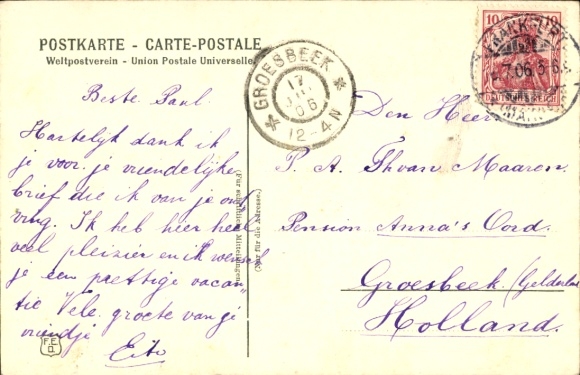 POSTKARTE - CARTE-POSTALE
Weltpostverein - Union Postale Universelle.
Beste Paul.
Hartelijk dank ik
je voor je vriendelijke
brief die ik van je ont
ving. Ik heb hier heel
veel pleizier en ik wensch
je een prettige vacan
tie Vele groete van je
vriendje
Eito
F.E.
D.
(Für schriftliche Mitteilungen.)
(Nur für die Adresse.)
GROESBEEK
17
06
12-4N
10 10
DEUTSCHES REICH
FRANKFURT
7.06.
(MAIN)
Den Heer
P. A. Maaren.
Pension Anna's Oord.
Groesbeek (Gelderland
Holland.